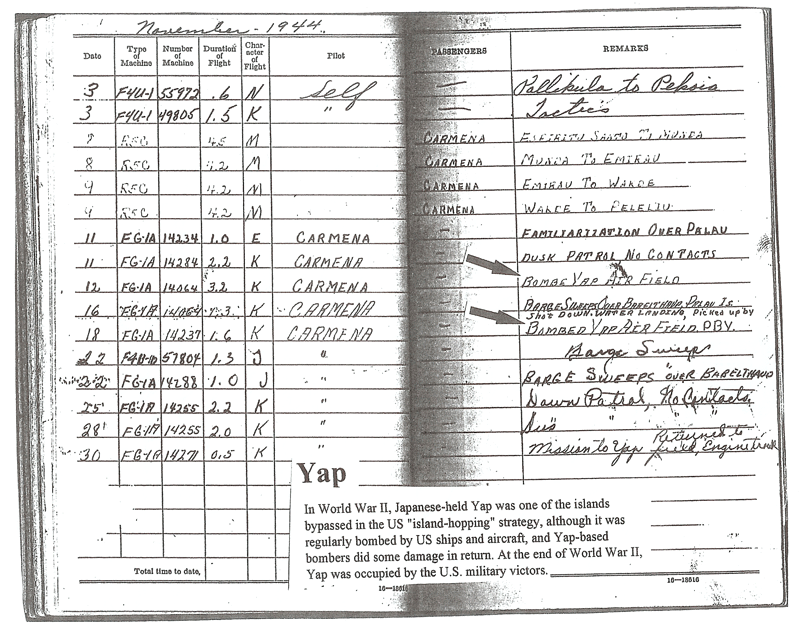 November - 1944
Date Type of Machine Number of Machine Duration of Flight Character of Flight Pilot PASSENGERS REMARKS
3 F4U-1 55972 .6 N Self — Pallikula to Pekoia
3 F4U-1 49805 1.5 K " — Tactics
7 R5C 4.5 M CARMENA ESPIRITU SANTO TO MUNDA
8 R5C 4.2 M CARMENA MUNDA TO EMIRAU
9 R5C 4.2 M CARMENA EMIRAU TO WAKDE
9 R5C 4.2 M CARMENA WAKDE TO PELELIU
11 FG-1A 14234 1.0 E CARMENA - FAMILIARIZATION OVER PALAU
11 FG-1A 14284 2.2 K CARMENA - DUSK PATROL NO CONTACTS
12 FG-1A 14064 3.2 K CARMENA BOMBE YAP AIR FIELD
16 FG-1A 14064 1.3 K CARMENA - BARGE SWEEPS OVER BABELTHAUP, PALAU IS
Shot DOWN. WATER LANDING, Picked up by
18 FG-1A 14237 1.6 K CARMENA - BOMBED YAP AIR FIELD PBY.
22 57804 1.3 J " - Barge Sweep
22 FG-1A 14288 1.0 J " - BARGE SWEEPS OVER BABELTHAUP
25 FG-1A 14255 2.2 K " - Dawn Patrol, No Contacts
28 FG-1A 14255 2.0 K " - " " "
30 FG-1A 14271 0.5 K " - Mission to Yap Returned to field, Engine
Yap
In World War II, Japanese-held Yap was one of the islands
bypassed in the US "island-hopping" strategy, although it was
regularly bombed by US ships and aircraft, and Yap-based
bombers did some damage in return. At the end of World War II,
Yap was occupied by the U.S. military victors.
Total time to date,
16—18516